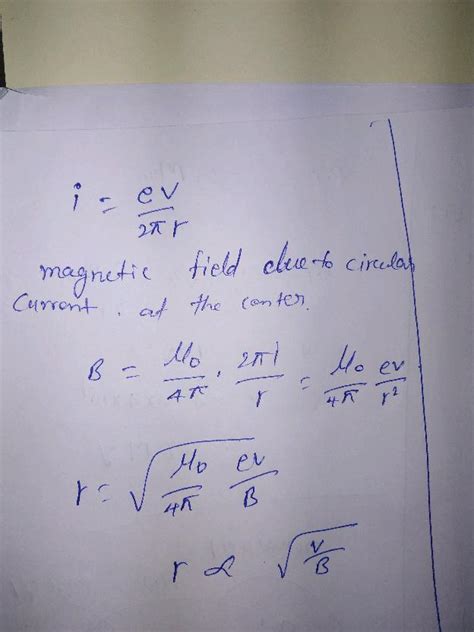 i = ev / 2π r
magnetic field due to circular
Current . at the center.
B = μ₀ / 4π . 2πi / r = μ₀ / 4π ev / r²
r = √( μ₀ / 4π ev / B )
r ∝ √( v / B )